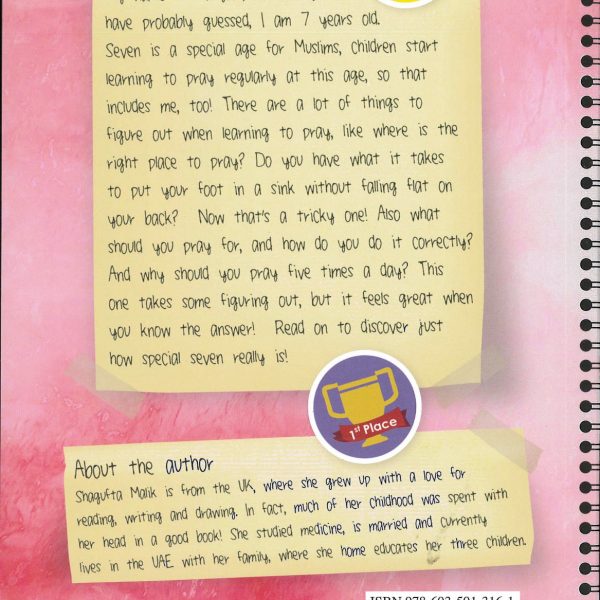 have probably guessed, I am 7 years old.
Seven is a special age for Muslims, children start
learning to pray regularly at this age, so that
includes me, too! There are a lot of things to
figure out when learning to pray, like where is the
right place to pray? Do you have what it takes
to put your foot in a sink without falling flat on
your back? Now that's a tricky one! Also what
should you pray for, and how do you do it correctly?
And why should you pray five times a day? This
one takes some figuring out, but it feels great when
you know the answer! Read on to discover just
how special seven really is!
1st Place
About the author
Shagufta Malik is from the UK, where she grew up with a love for
reading, writing and drawing. In fact, much of her childhood was spent with
her head in a good book! She studied medicine, is married and currently
lives in the UAE with her family, where she home educates her three children.
ISBN 978-603-501-316-1